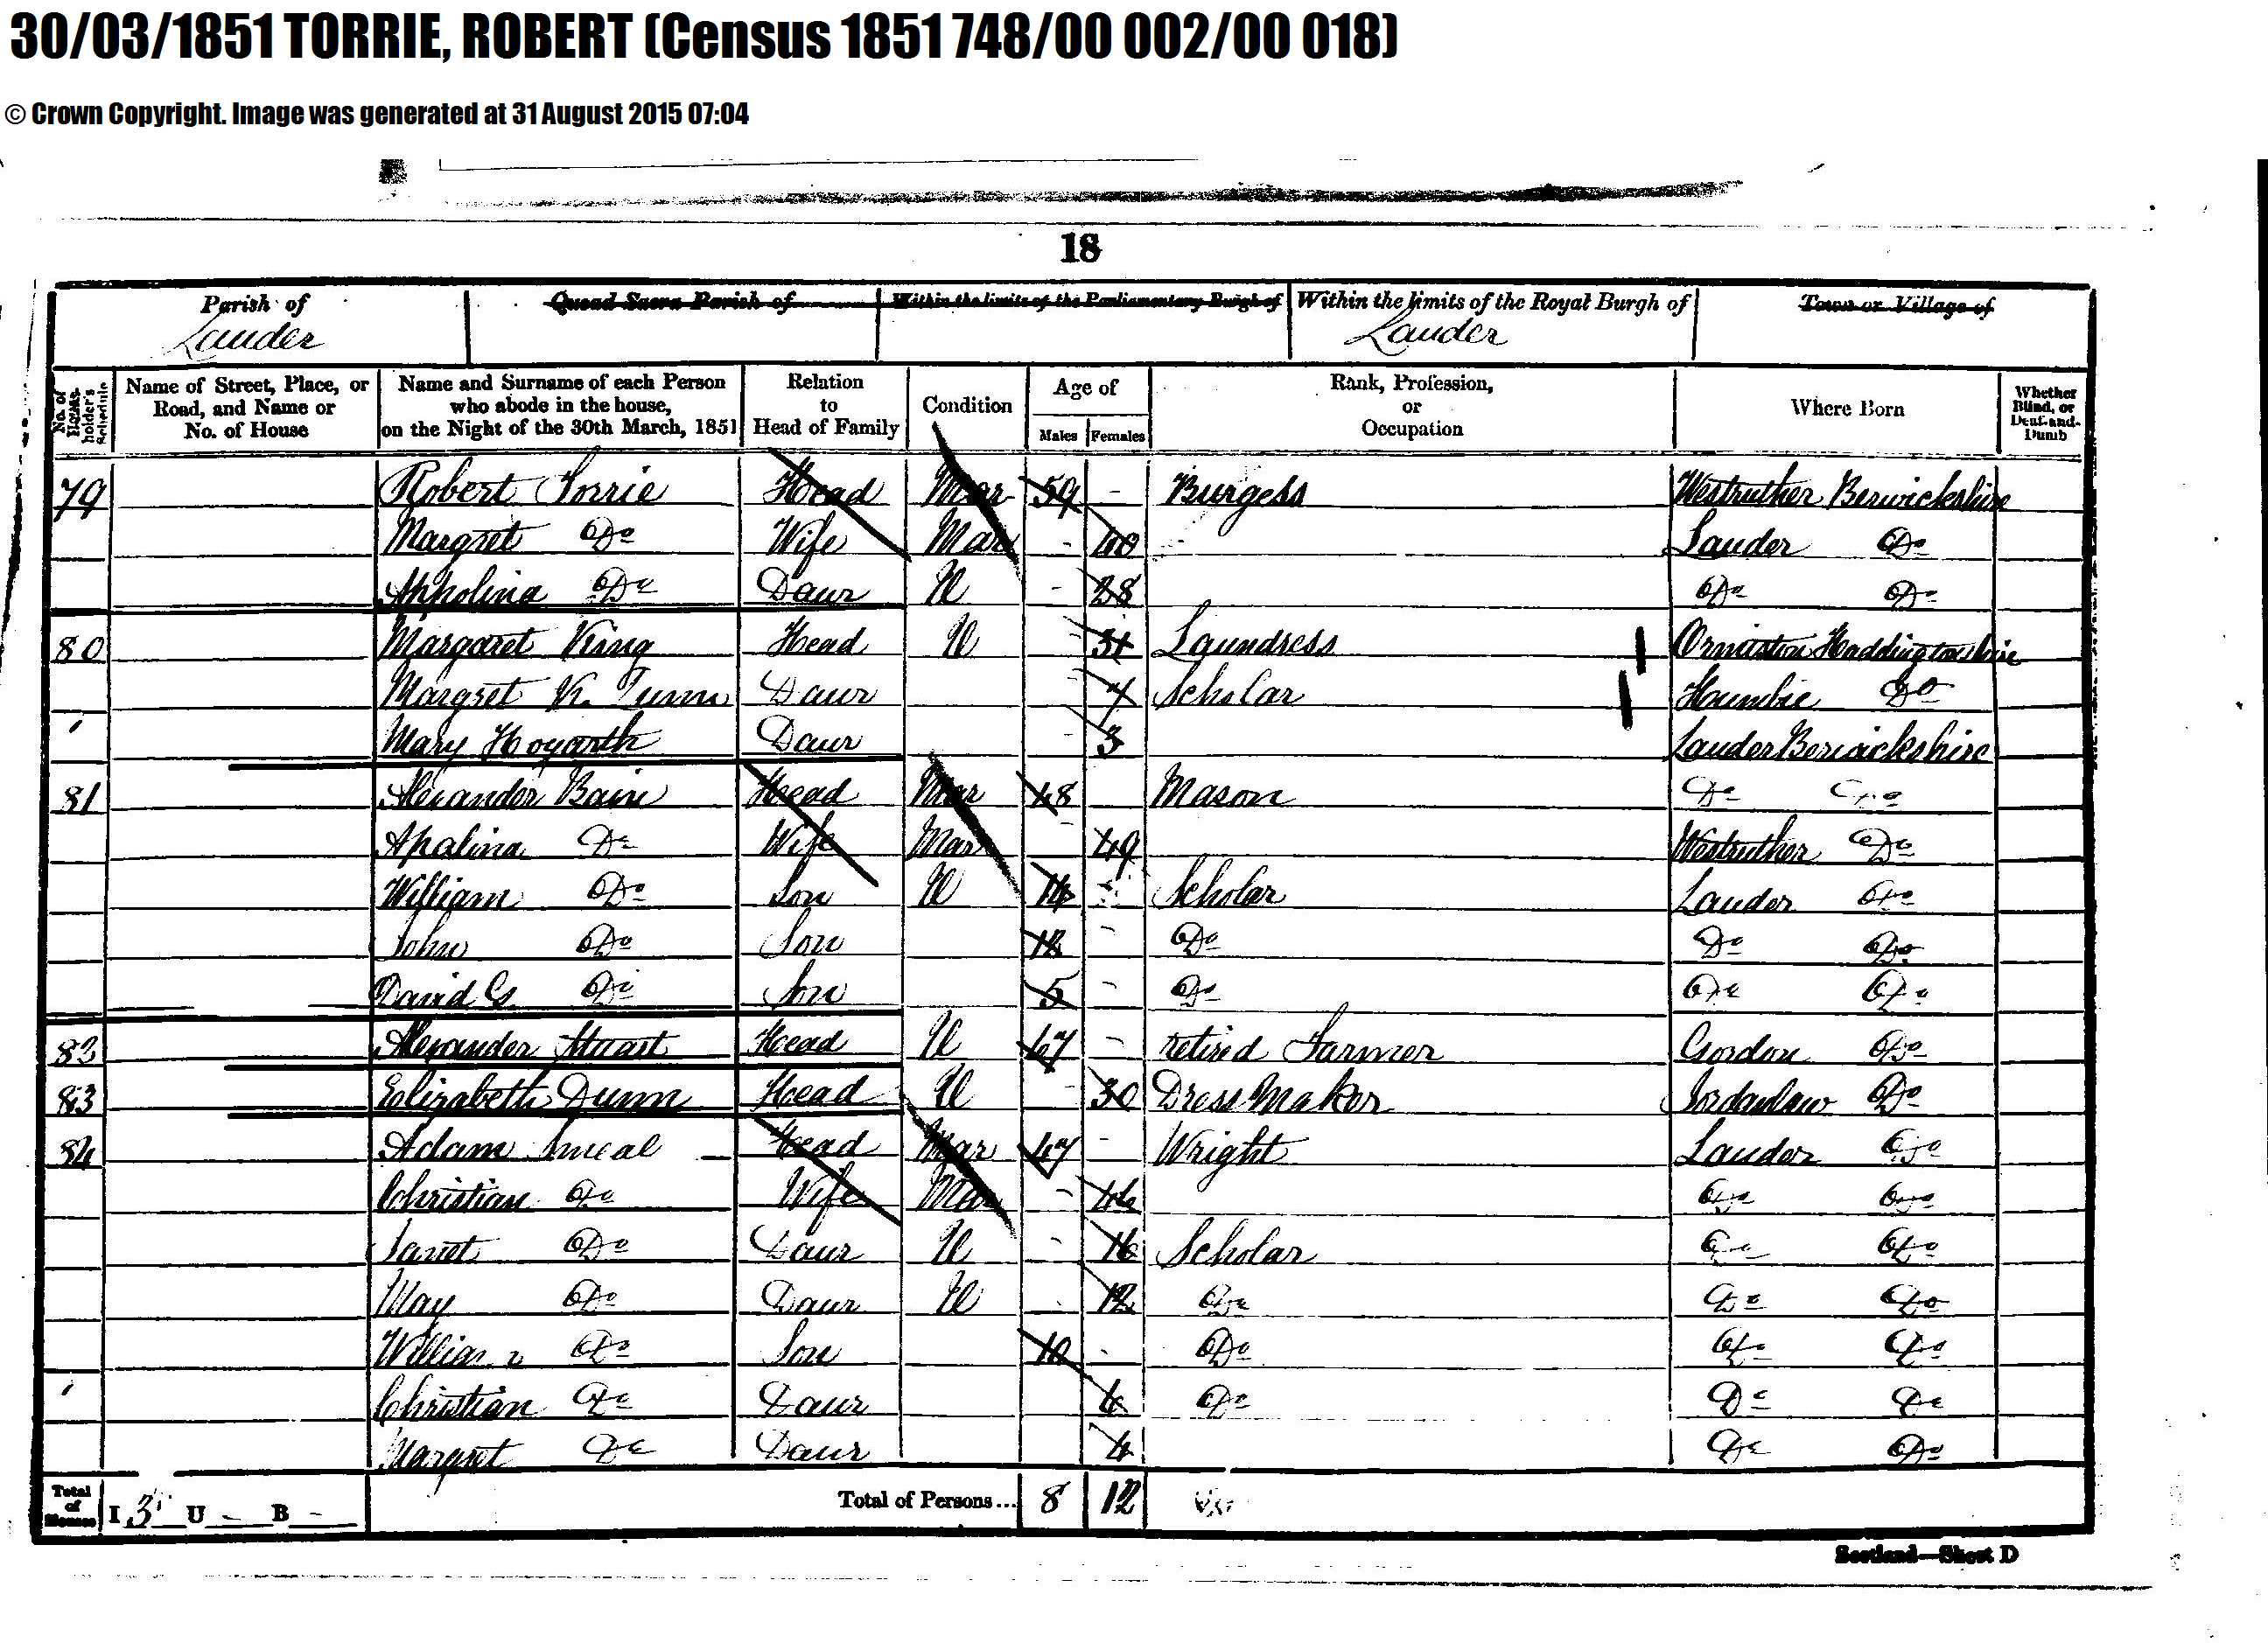 30/03/1851 TORRIE, ROBERT (Census 1851 748/00 002/00 018)
© Crown Copyright. Image was generated at 31 August 2015 07:04
18
Parish of Quoad Sacra Parish of Within the limits of the Parliamentary Burgh of Within the limits of the Royal Burgh of Town or Village of
Lauder Lauder
No. of House-holder's Schedule Name of Street, Place, or Road, and Name or No. of House Name and Surname of each Person who abode in the house, on the Night of the 30th March, 1851 Relation to Head of Family Condition Age of Males Females Rank, Profession, or Occupation Where Born Whether Blind, or Deaf-and-Dumb
79 Robert Torrie Head Mar 59 - Burgess Westruther Berwickshire
Margret Do Wife Mar - 40 Lauder Do
Appolina Do Daur U - 28 Do Do
80 Margaret King Head U - 31 Laundress Ormiston Haddingtonshire
Margret K. Daur 7 Scholar Humbie Do
Mary Hogarth Daur - 3 Lauder Berwickshire
81 Alexander Bain Head Mar 48 Mason Do Do
Apalina Do Wife Mar - 49 Westruther Do
William Do Son U 14 Scholar Lauder Do
John Do Son 12 - Do Do Do
David G Do Son 5 - Do Do Do
82 Alexander Stuart Head U 67 - retired Farmer Gordon Do
83 Elizabeth Dunn Head U - 30 Dress Maker Do
84 Adam Head Mar 47 - Wright Lauder Do
Christian Do Wife Mar - 46 Do Do
Janet Do Daur U - 16 Scholar Do Do
May Do Daur U 12 Do Do Do
William Do Son 10 Do Do Do
Christian Do Daur Do Do Do
Margret Do Daur 4 Do Do
Total of Houses I 3 U - B - Total of Persons... 8 12
Scotland—Sheet D